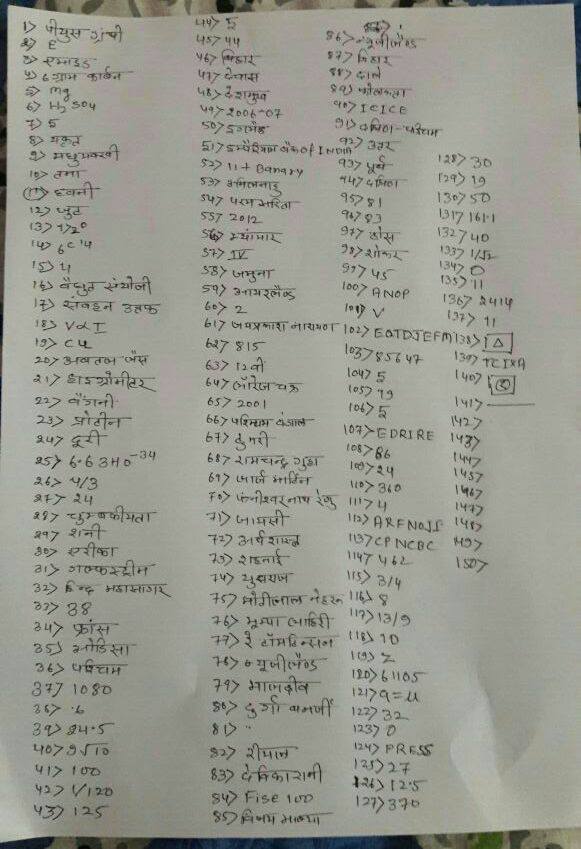 1> पीयुस ग्रंथी
2> E
3> एमाइड
4> 6 ग्राम कार्बन
5> mg
6> H2SO4
7> 5
8> यकृत
9> मधुमक्खी
10> तना
11> ध्वनी
12> जुट
13>
14> 6C14
15> 4
16> वैधुत संयोजी
17>
18> V∝I
19> C4
20> अवतल लैंस
21> हाइग्रोमीटर
22> बैंगनी
23> प्रोटीन
24> दूरी
25> 6.63×10-34
26> 4/3
27> 24
28> चुम्बकीयता
29> शनी
30> एरीका
31> गल्फस्ट्रीम
32> हिन्द महासागर
33> 38
34> फ्रांस
35> ओडिसा
36> पश्चिम
37> 1080
38> .6
39> 24.5
40> 9√10
41> 100
42> 1/120
43> 125
44> 5
45> 44
46> बिहार
47> देवास
48> देशमुख
49> 2006-07
50> इंग्लैंड
51> इम्पीरियल बैंक of INDIA
52> 11+ Banary
53> तमिलनाडु
54> परम सरिता
55> 2012
56> म्यांमार
57> IV
58> जमुना
59> आयरलैण्ड
60> 2
61> जयप्रकाश नारायण
62> 815
63> 12वी
64> लॉरेंज चक्र
65> 2001
66> पश्चिम बंगाल
67> ठुमरी
68> रामचन्द्र गुहा
69> जार्ज मार्टिन
70> फनीश्वरनाथ रेणु
71> जायसी
72> अर्थशास्त्र
73> शहनाई
74>
75> मोतीलाल नेहरू
76> झुम्पा लाहिरी
77> रे टॉमलिन्सन
78> न्यूजीलैंड
79> मालदीव
80> दुर्गा बनर्जी
81>
82> शैमान
83> देविकारानी
84> Fise 100
85> विजय माल्या
86> न्यूजीलैंड
87> बिहार
88> दाले
89> कोलकता
90> ICICE
91> दक्षिण-पश्चिम
92> उतर
93> पूर्व
94> दक्षिण
95> 81
96> 83
97> ठोस
98> शोफर
99> 45
100> ANOP
101> V
102> EQTDJEFM
103> 85647
104> 5
105> 99
106> 5
107> EDRIRE
108> 86
109> 24
110> 360
111> 4
112> ARFNOJS
113> CPNCBC
114> 462
115> 3/4
116> 8
117> 13/9
118> 10
119> Z
120> 61105
121> 9=4
122> 32
123> 0
124> PRESS
125> 27
126> 12.5
127> 370
128> 30
129> 19
130> 50
131> 161.1
132> 40
133>
134> 0
135> 11
136> 2414
137> 11
138> △
139> TCIXA
140>
141>
142>
143>
144>
145>
146>
147>
148>
149>
150>